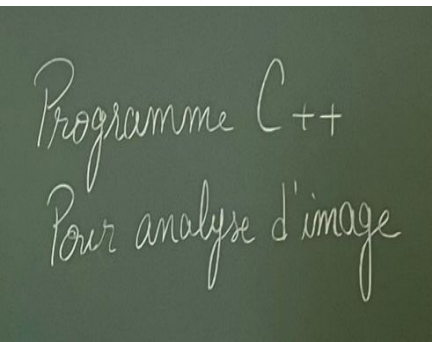 Programme C++
Pour analyse d'image